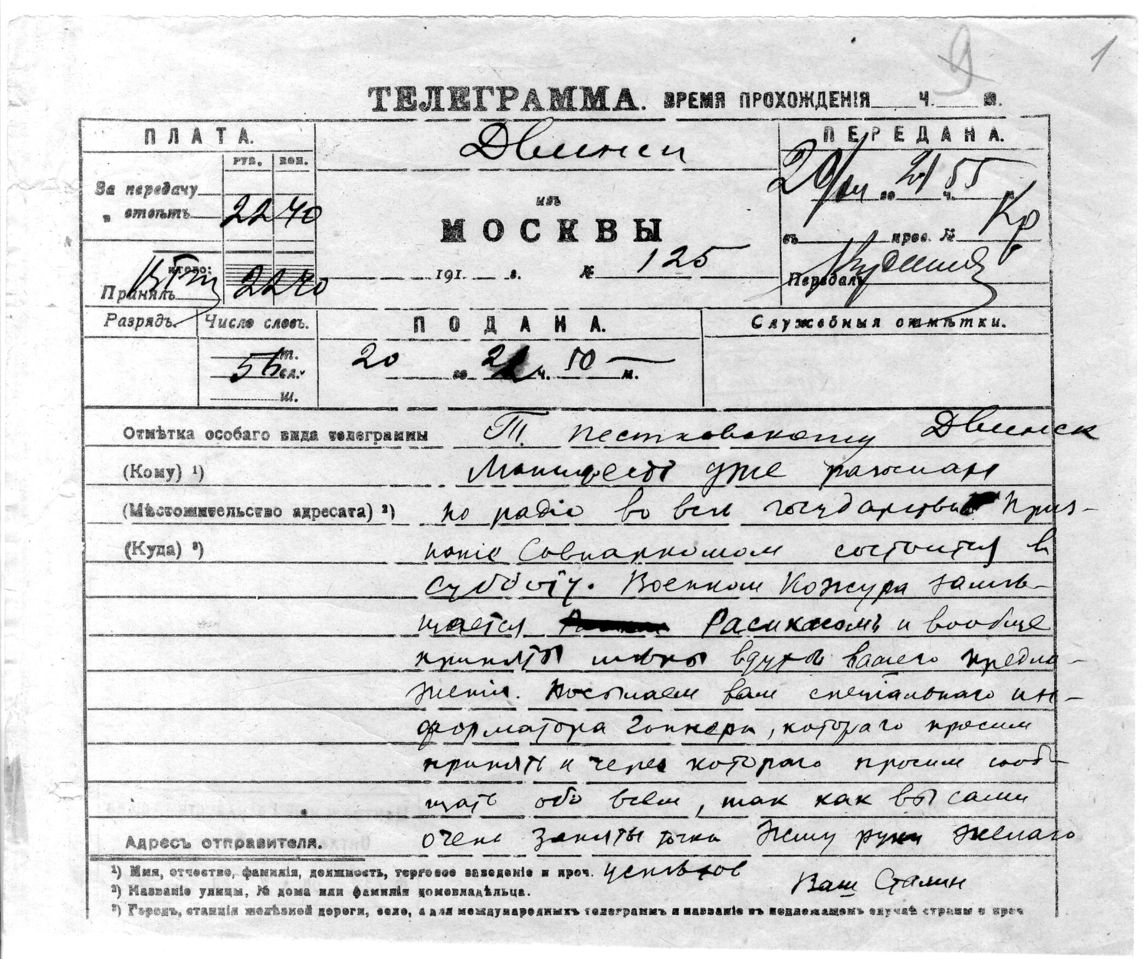 9 1
ТЕЛЕГРАММА. ВРЕМЯ ПРОХОЖДЕНІЯ Ч. М.
ПЛАТА.
РУБ. КОП.
За передачу
„ отвѣтъ 22 40
ИТОГО: 22 40
Принялъ
Двинск
изъ
МОСКВЫ
191 г. № 125
ПЕРЕДАНА.
20/ го 21 ч. 55
въ пров. № Кр
Передалъ
Разрядъ. Число словъ.
56 т.
сл.
ш.
ПОДАНА.
20 го 21 ч. 50 м.
Служебныя отмѣтки.
Отмѣтка особаго вида телеграммы Т. Пестковскому Двинск
(Кому) ¹) Манифест уже
(Мѣстожительство адресата) ²) по радіо во все государства Приз-
(Куда) ³) наніе Совнаркомом состоится в
субботу. Военком Кожура заме-
щается Расикасомъ и вообще
приняты меры вдухе вашего предло-
жения. Посылаем вам специального ин-
форматора Гопнера, котораго просим
принять и через котораго просим сооб-
щать обо всем, так как вы сами
Адресъ отправителя. очень заняты точка Жму руки желаю
¹) Имя, отчество, фамилія, должность, торговое заведеніе и проч. успехов
²) Названіе улицы, № дома или фамилія домовладѣльца. Ваш Сталин
³) Городъ, станція желѣзной дороги, село, а для международныхъ телеграммъ и названіе въ подлежащемъ случаѣ страны и проч